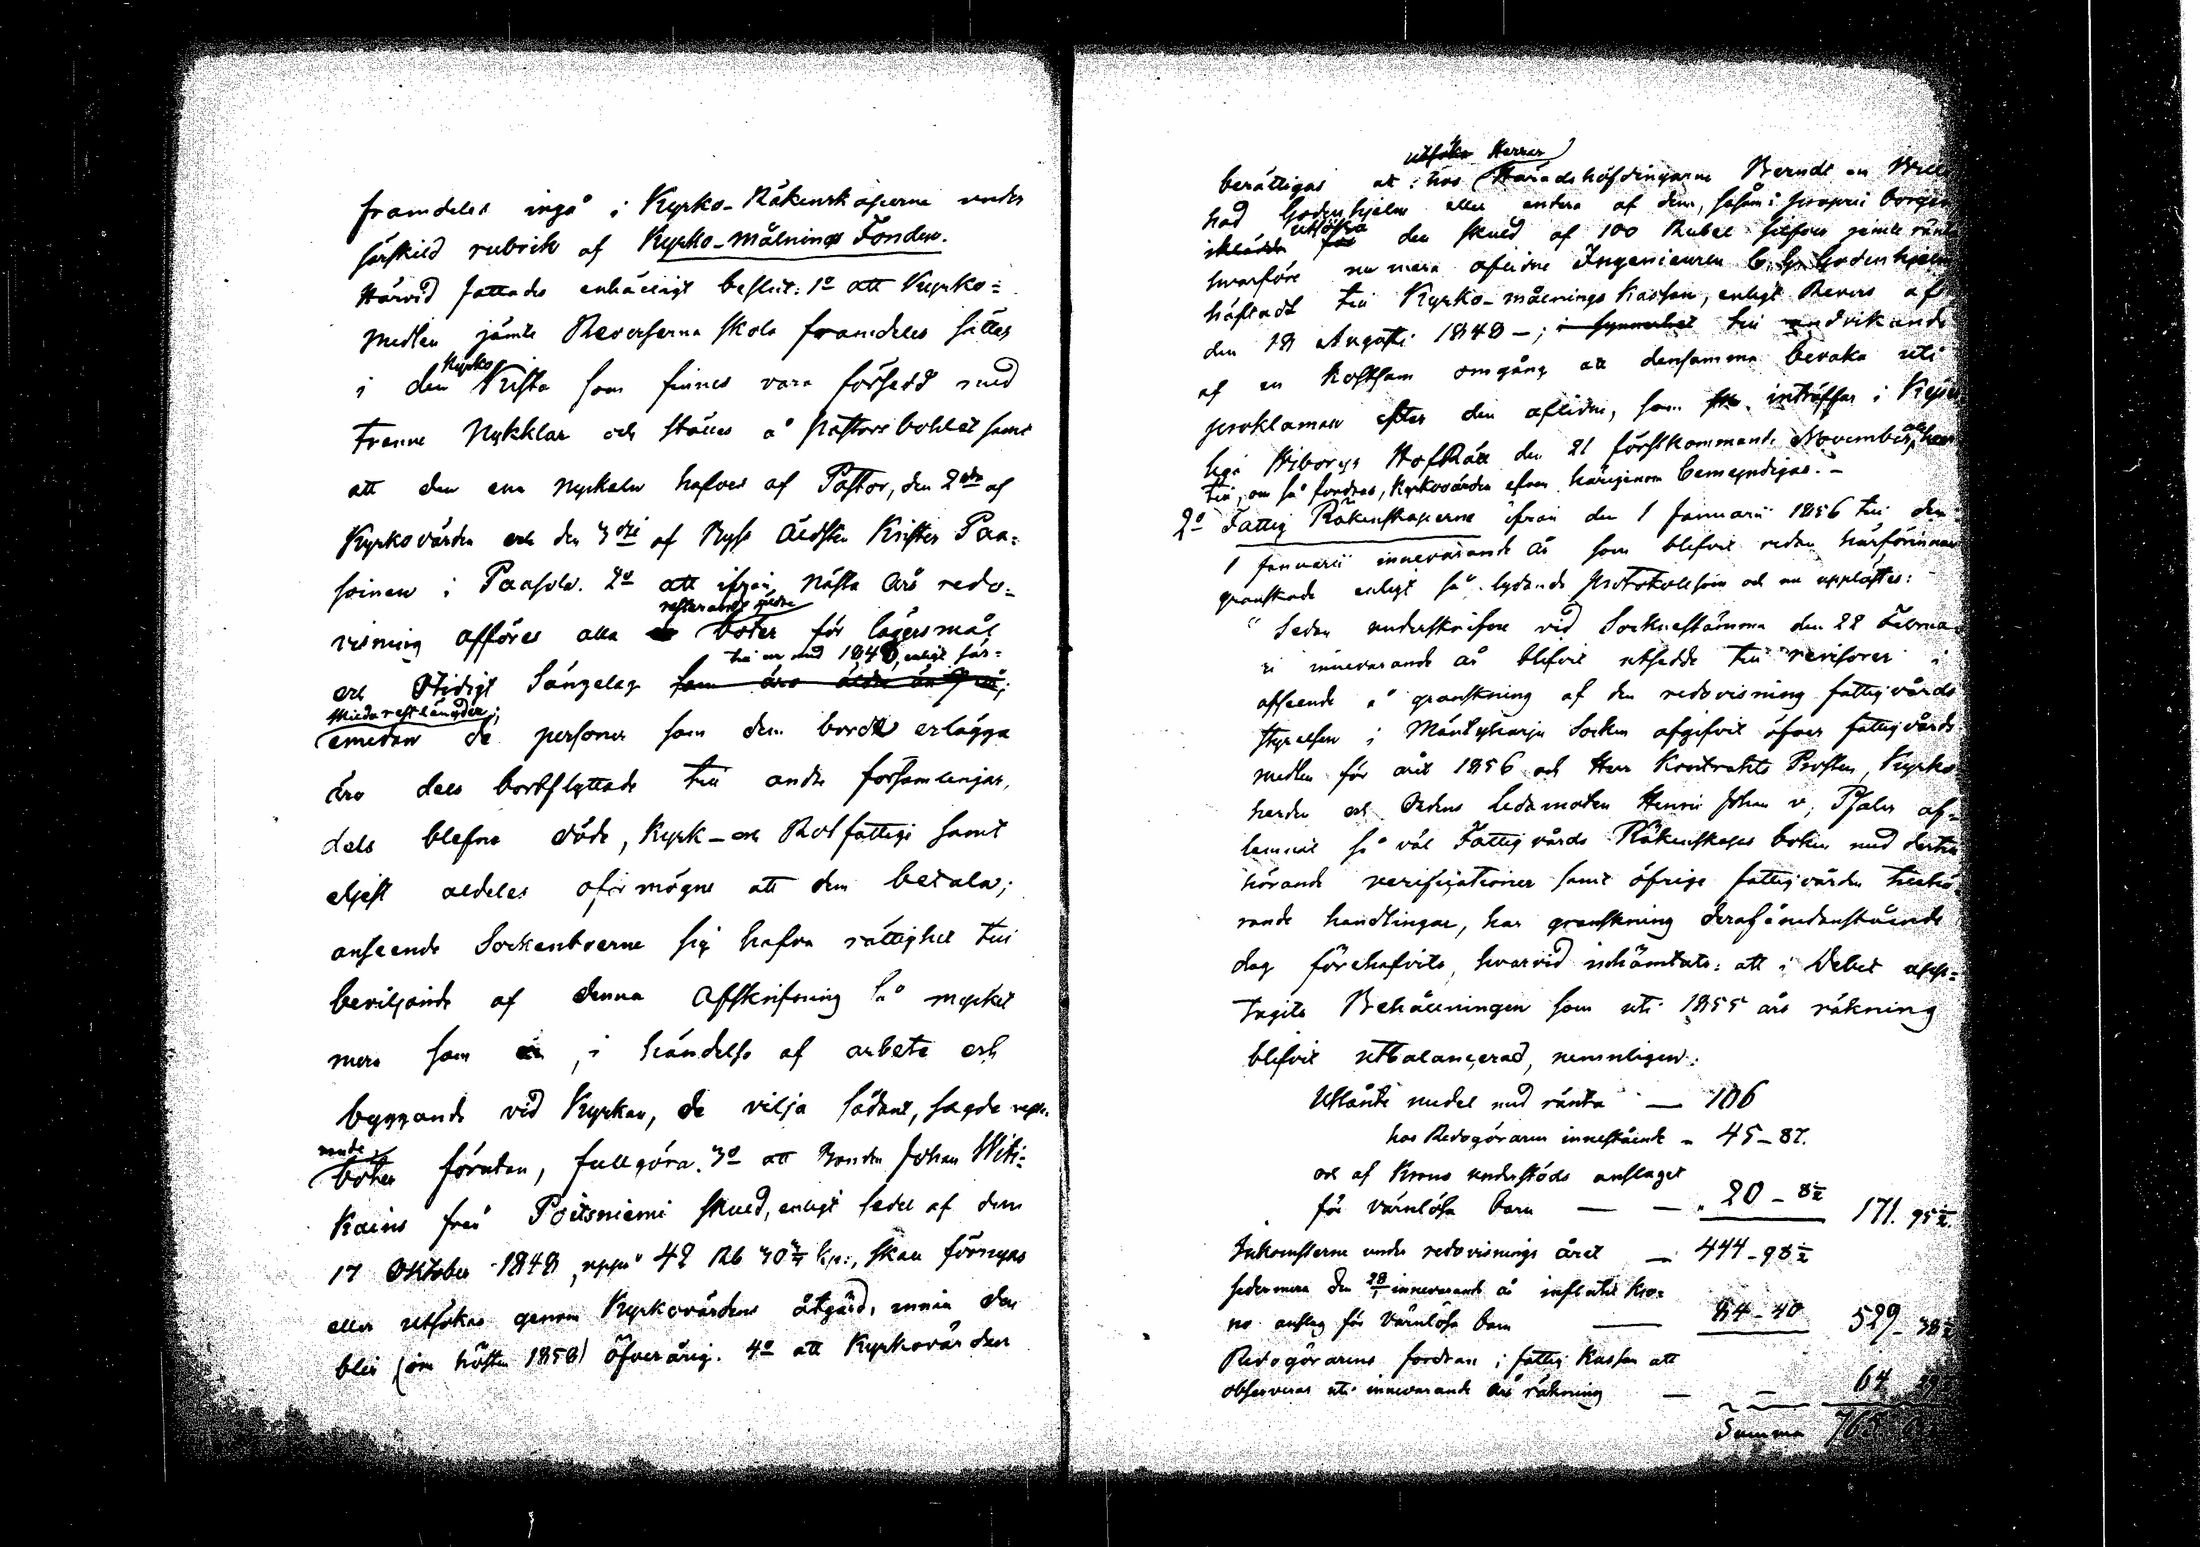 framdeles ingå i Kyrko-Räkenskaperne under
särskild rubrik af Kyrko-målnings Fonden.
Härvid fattades enhälligt beslut: 1o att Kyrko=
medlen jämte Reverserna skola framdeles sättes
Kyrko
i den Kista som finnes vara försedd med
trenne Nykklar och ställes å Pastors bohlet samt
att den ena nyckeln hafves af Pastor, den 2dra af
Kyrkovärden och den 3dje af Byss Äldsten Krister Paa=
soinen i Paasola. 2o att ifrån nästa års redo=
resterande äldre
visning afföres alla böter för lägersmål
till och med 1848, enligt sär=
och Otidigt Sängelag som äro äldre än
skilda restlängder;
emedan de personer som dem borde erlägga
äro dels bortflyttade till andra församlingar,
dels blefne döde, Kyrk- och Rotfattige samt
eljest aldeles oförmögne att dem betala;
anseende Sockneboerne sig hafva rättighet till
beviljande af denna Afskrifning så mycket
mera som , i händelse af arbete och
byggande vid Kyrkan, de vilja sådant, sagde reste=
rande
böter förutan, fullgöra. 3o att Bonden Johan Witi=
kains från Poitsniemi skuld, enligt sedel af den
17 Oktober 1848, uppå 42 Rb 30 3/7 kp:, skall förnyas
eller utsökas genom Kyrkovärdens åtgärd, innan den
blir (om hösten 1858) öfverårig. 4o att Kyrkovärden
utsöka Herrar
berättigas at hos Häradshöfdingarne Berndt en
had Godenhjelm eller endera af dem, såsom i proprii borgen
utsöka
den skuld af 100 Rubel silfver jemte ränta
hvarföre nu mera aflidne Ingenieuren C. G. Godenhjelm
häftadt till Kyrko-målnings Kassan, enligt Revers af
den 18 Augusti 1848 -; i synnerhet till undvikande
af en kostsam omgång att densamma bevaka uti
proklaman efter den aflidne, som inträffar i Kejser
liga Wiborgs HofRätt den 21 förstkommande November,
till, om så fordras, Kyrkovärden äfven härigenom bemyndigas. -
2o Fattig Räkenskaperne ifrån den 1 Januarii 1856 till den
1 Januarii innevarande år som blifvit redan härförinnan
granskade enligt så lydande protokoll som ock nu upplästes:
" Sedan underskrifne vid Sockneståmma den 22 Februa-
ri innevarande år blifvit utsedde till revisorer i
afseende å granskning af den redovisning fattigvårds
styrelsen i Mäntyharju Socken afgifvit öfver fattigvårds
medlen för året 1856 och Herr Kontrakts Prosten, Kyrko
herden och Ordens Ledamoten Henric Johan v. Pfaler af=
lemnat så väl Fattigvårds Räkenskaps boken med dertill
hörande verifikationer samt öfrige fattigvården tillhö-
rande handlingar, har granskning deraf å nedanstående
dag förehafvits, hvarvid inhämtats: att i Debet upp=
tagits Behållningen som uti 1855 års räkning
blifvit utbalancerad, nemnligen:
Utlånte medel med ränta — 106
hos Redogöraren innestående - 45-87.
och af Krono understöds anslaget
för värnlösa barn — — 20-8½ 171. 95½.
Inkomsterne under redovisnings året — 444-98½
sedermera den innevarande år influtit Kro=
no anslag för värnlösa barn — 84-40 529-38½
Redogörarens fordran i fattig kassan att
observeras uti innevarande års räkning — — 64
Summa